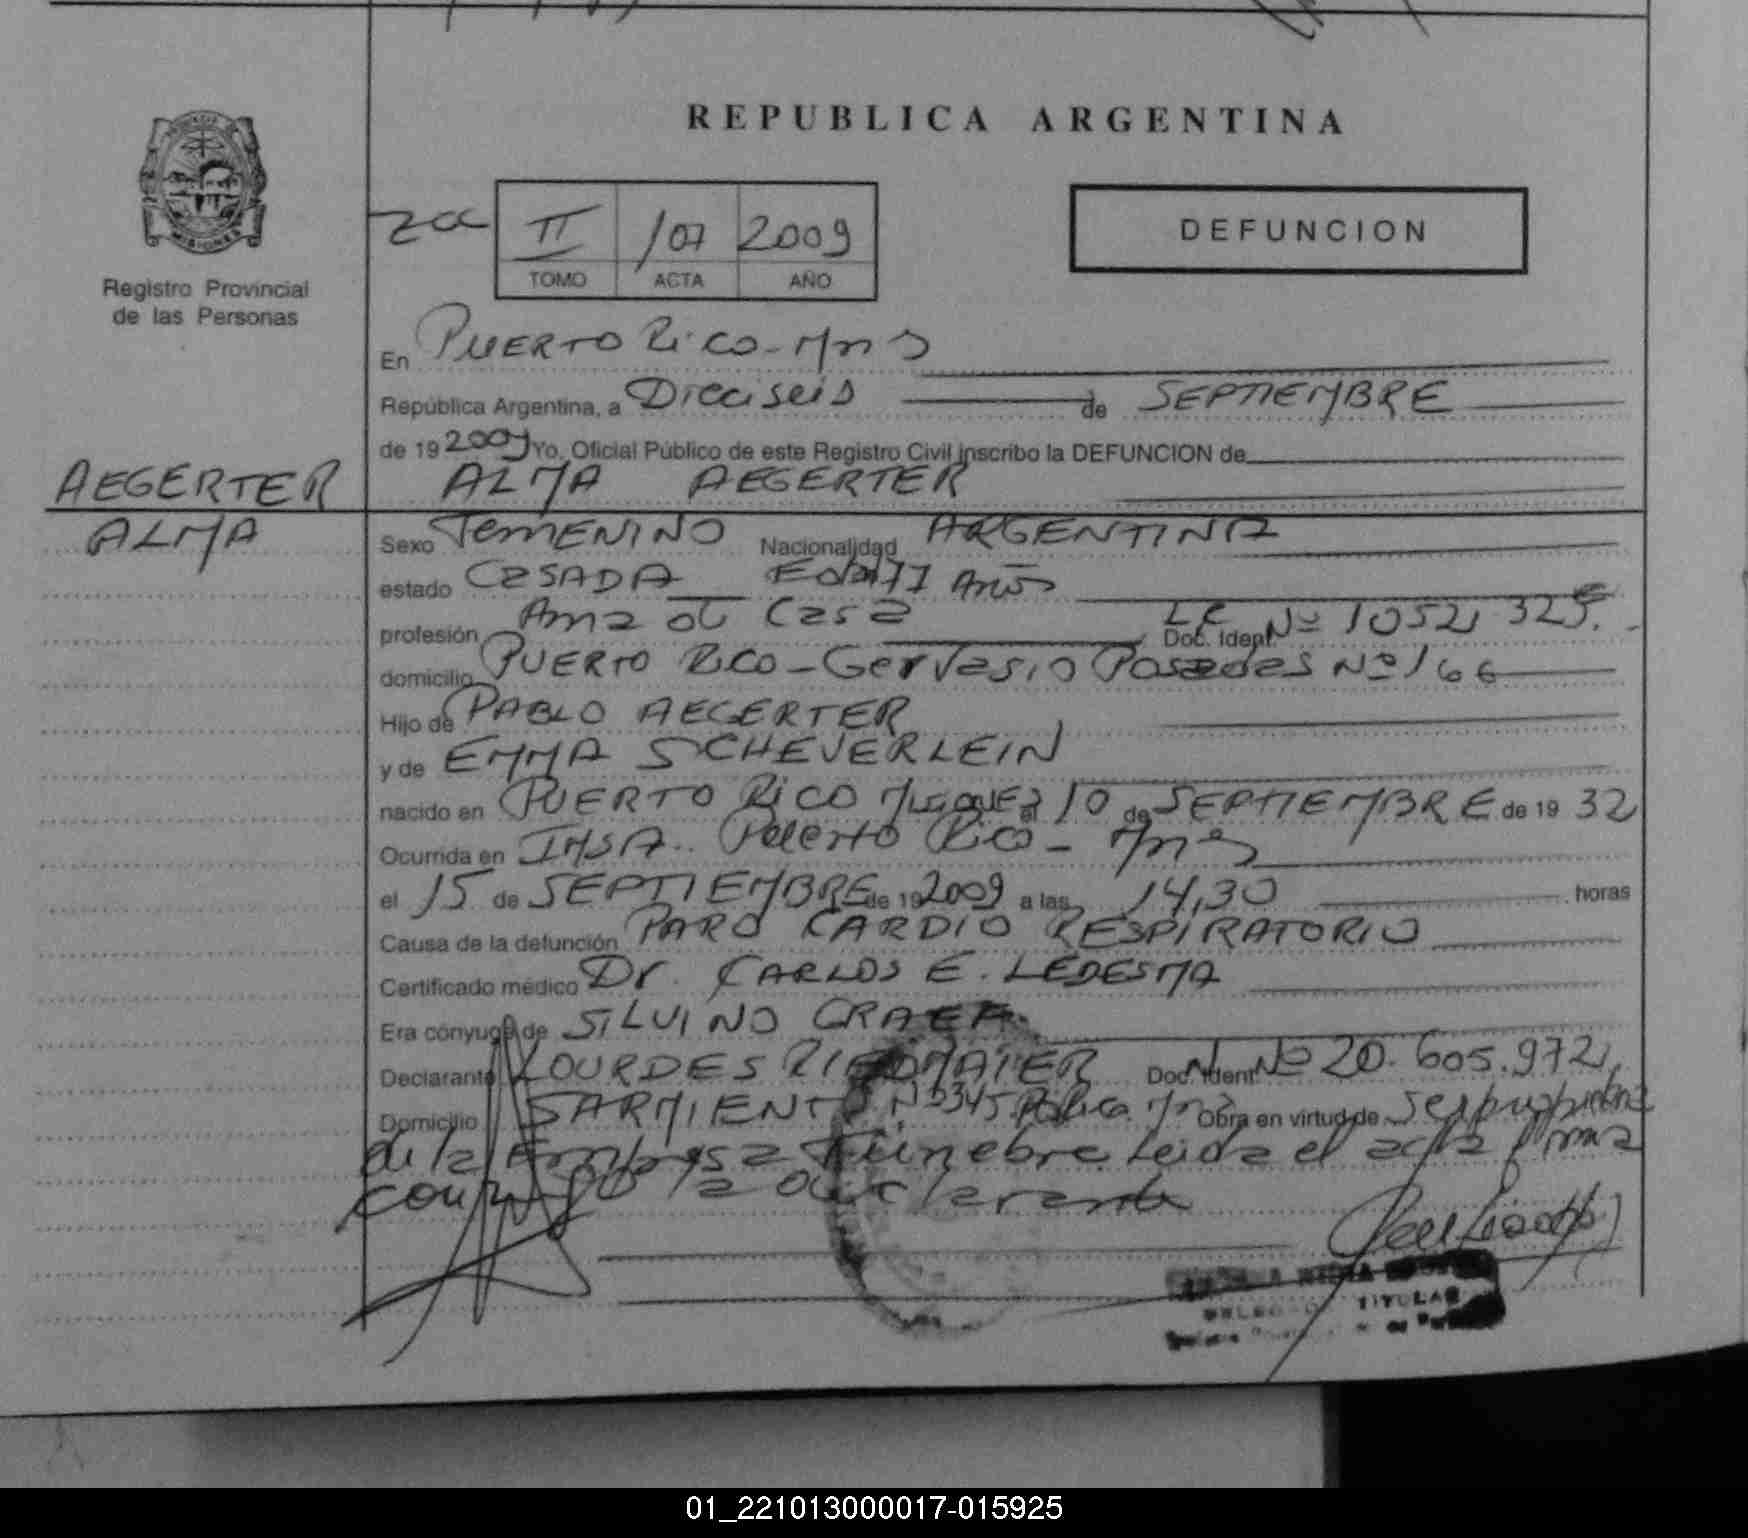 REPUBLICA ARGENTINA
PROVINCIA DE
MISIONES
Registro Provincial
de las Personas
II 107 2009
TOMO ACTA AÑO
DEFUNCION
En PUERTO RICO - Mnes
República Argentina, a Dieciseis de SEPTIEMBRE
de 19 2009 Yo, Oficial Público de este Registro Civil inscribo la DEFUNCION de
AEGERTER ALMA AEGERTER
ALMA
Sexo FEMENINO Nacionalidad ARGENTINA
estado CASADA Edad 77 Años
profesión Ama de Casa Doc. Ident. LC Nº 1052.325.
domicilio PUERTO RICO - Gervasio Posadas Nº 166
Hijo de PABLO AEGERTER
y de EMMA SCHEVERLEIN
nacido en PUERTO RICO el 10 de SEPTIEMBRE de 19 32
Ocurrida en IMSA.. Puerto Rico - Mnes
el 15 de SEPTIEMBRE de 19 2009 a las 14,30 horas
Causa de la defunción PARO CARDIO RESPIRATORIO
Certificado médico Dr. CARLOS E. LEDESMA
Era cónyuge de SILVINO GRAEF
Declarante LOURDES RIEDMAIER Doc. Ident. Nº 20.605.972
Domicilio SARMIENTO Nº 345 Obra en virtud de ser
de la Empresa Funebre Leida el acta firma
conmigo la declarante
TITULAR
01_221013000017-015925